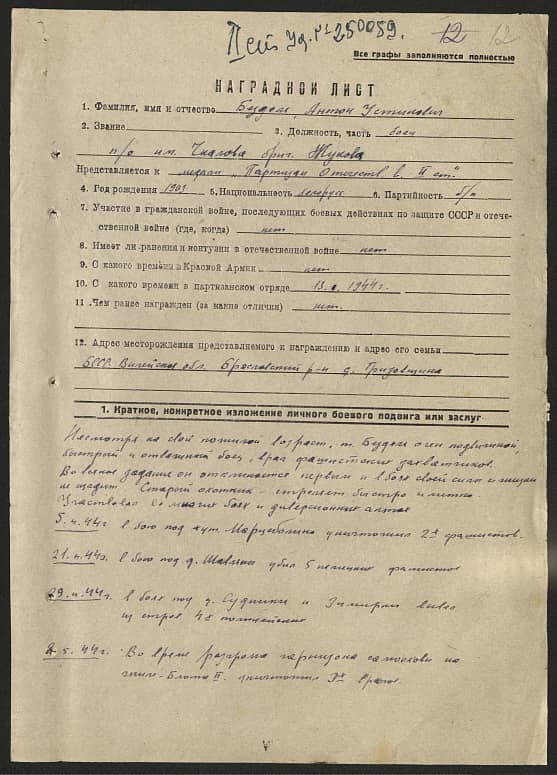 Уд. № 250059. 12 12
Все графы заполняются полностью
НАГРАДНОЙ ЛИСТ
1. Фамилия, имя и отчество Бездель Антон Устинович
2. Звание 3. Должность, часть боец
п/о им. Чкалова бриг. Жукова
Представляется к медали "Партизан Отечеств. в. II ст."
4. Год рождения 1909 5. Национальность белорусс 6. Партийность б/п
7. Участие в гражданской войне, последующих боевых действиях по защите СССР и отече-
ственной войне (где, когда) нет
8. Имеет ли ранения и контузии в отечественной войне нет
9. С какого времени в Красной Армии нет
10. С какого времени в партизанском отряде 1944г.
11. Чем ранее награжден (за какие отличия) нет.
12. Адрес месторождения представляемого к награждению и адрес его семьи
БССР. Вилейская обл. Браславский р-н д.
1. Краткое, конкретное изложение личного боевого подвига или заслуг
Несмотря на свой пожилой возраст, т. Бездель очен подвижной,
быстрый и отважный боец, враг фашистских захватчиков.
Во всякое задание он откликается первым и в бою своей силы и жизни
не щадит. Старый охотник - стреляет быстро и метко.
Участвовал во многих боях и диверсионных актах
5. 4. 44г в бою под хут. уничтожил 2х фашистов.
21. 4. 44г. в бою под д. убил 5 немецких фашистов
29. 4. 44г. в боях под д. Судники и вывел
из строя 4х полицейских
5. 44г. Во время разгрома гарнизона самооховы на
II. уничтожил врагов.